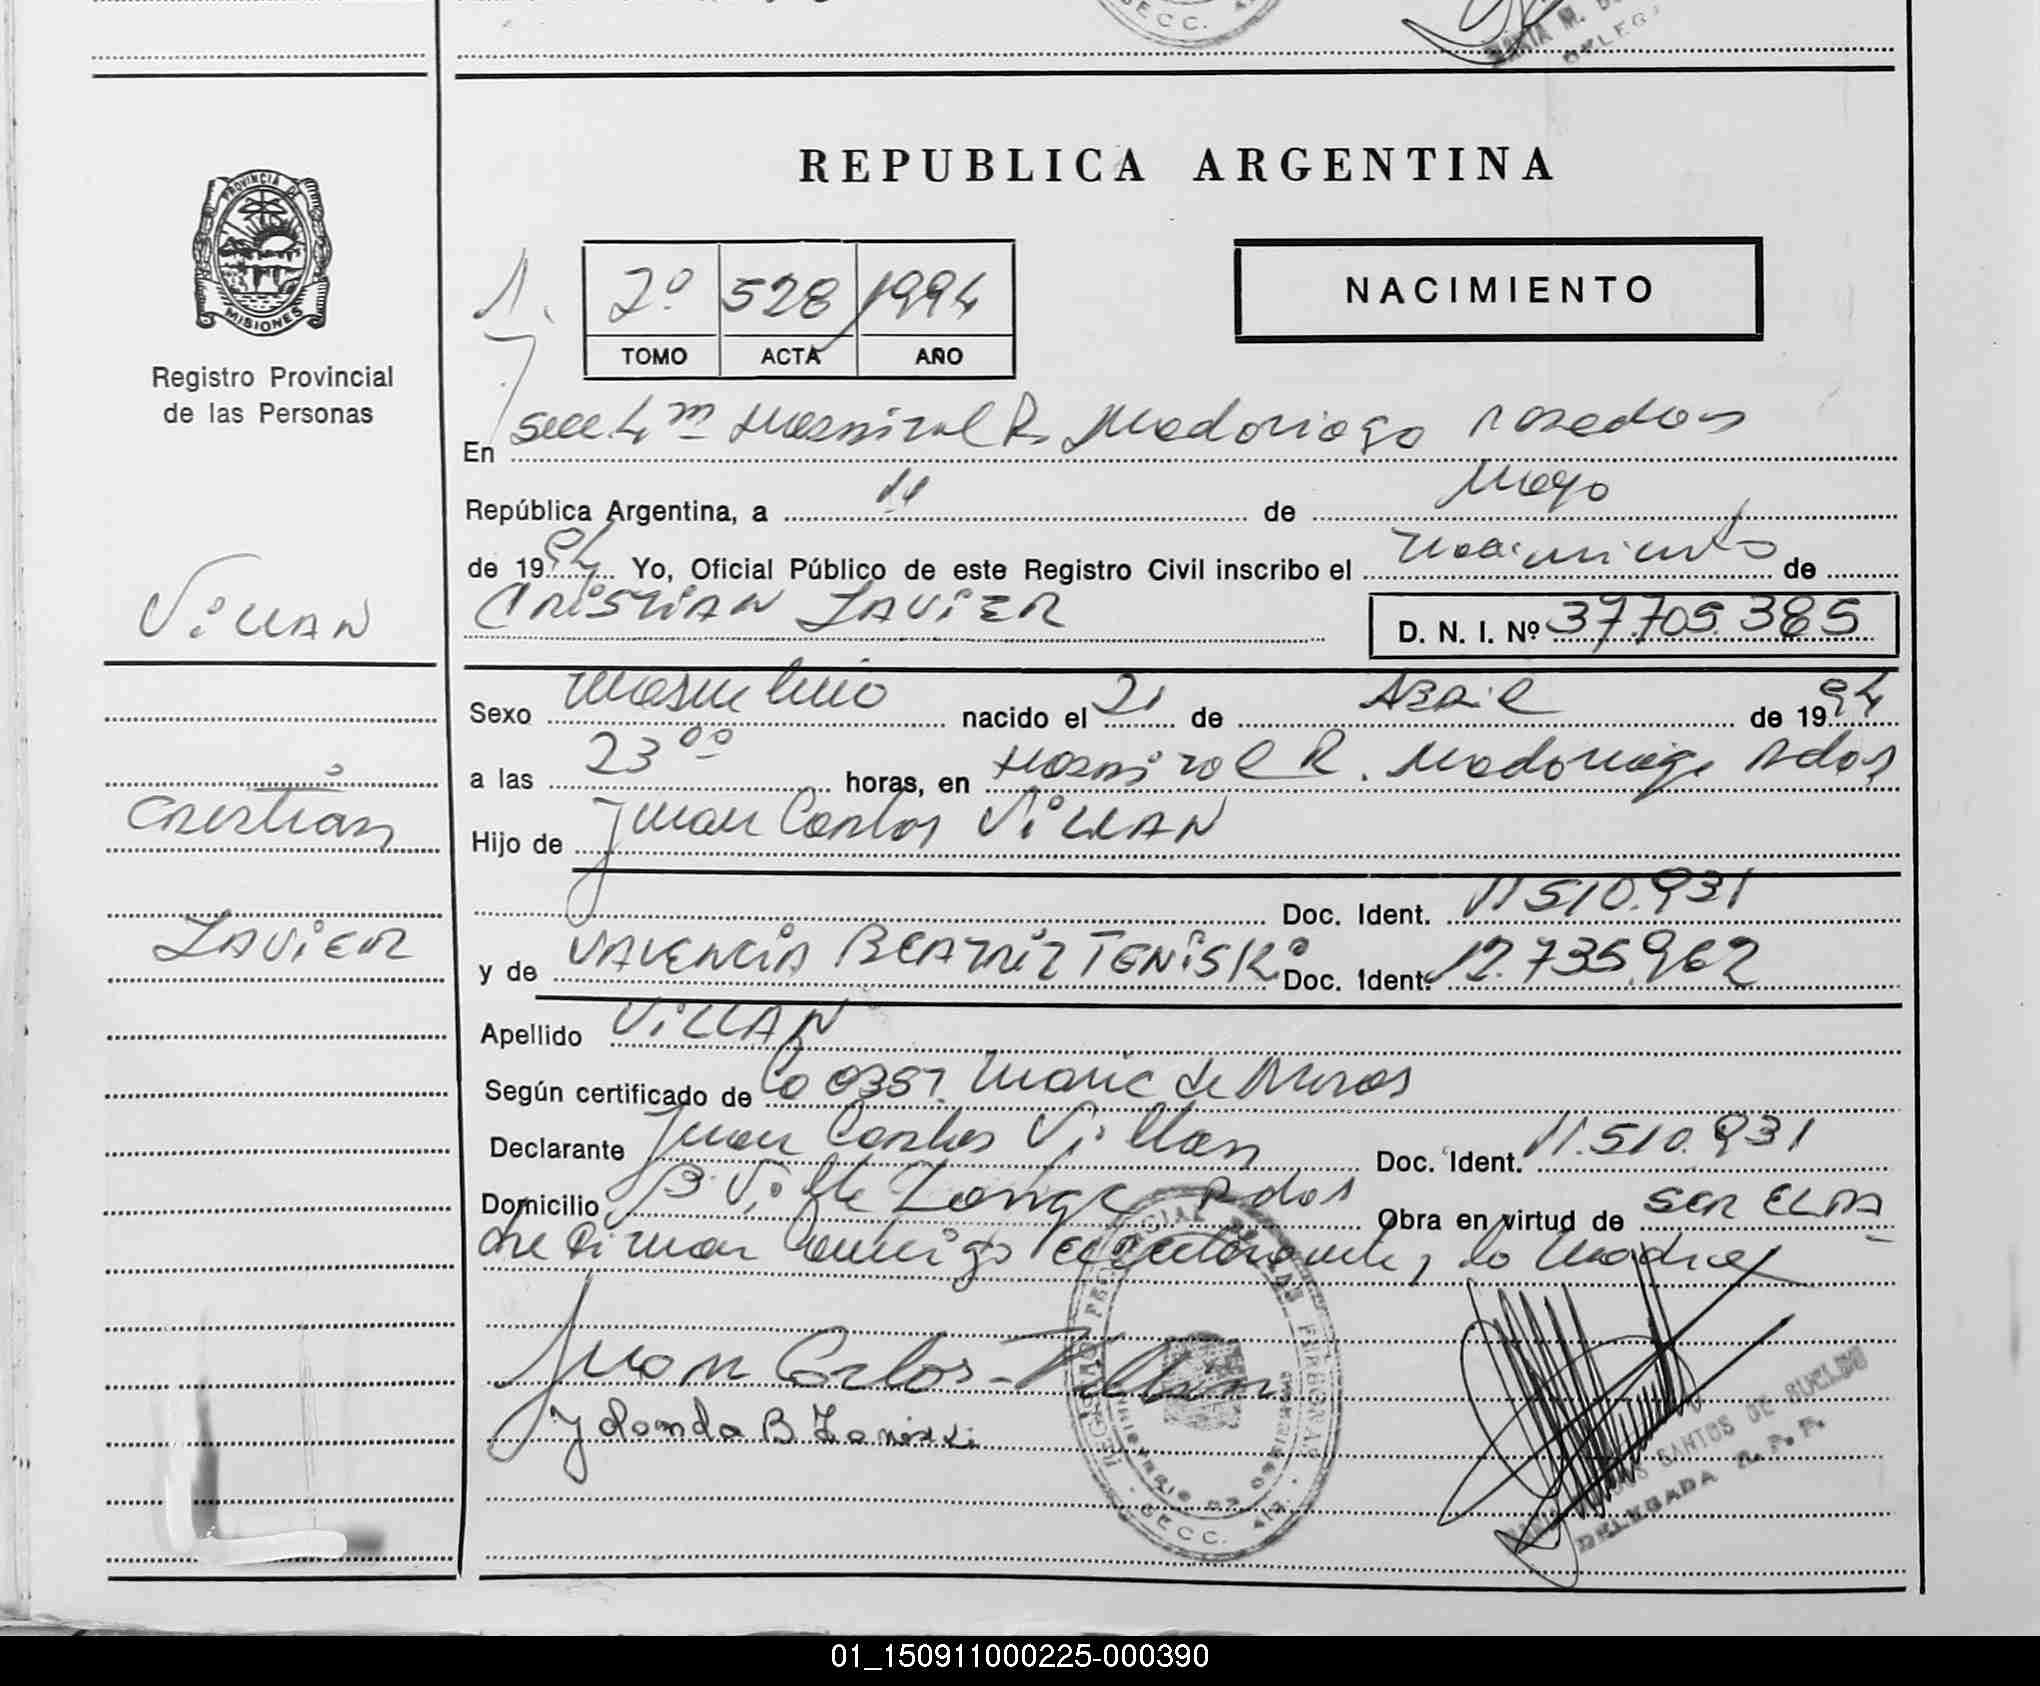 SECC.
REPUBLICA ARGENTINA
PROVINCIA DE
MISIONES
Registro Provincial
de las Personas
1.
2º 528 1994
TOMO ACTA AÑO
NACIMIENTO
En Secc. 4ta Hospital R. Madariaga Posadas
República Argentina, a 11 de Mayo
de 1994 Yo, Oficial Público de este Registro Civil inscribo el Nacimiento de
CRISTIAN JAVIER
D. N. I. Nº 37.705.385
VILLAN
Cristian
JAVIER
Sexo Masculino nacido el 21 de ABRIL de 1994
a las 23 00 horas, en Hospital R. Madariaga Pdas
Hijo de Juan Carlos VILLAN
Doc. Ident. 11.510.931
y de BEATRIZ Doc. Ident. 12.735.962
Apellido VILLAN
Según certificado de
Declarante Juan Carlos Villan Doc. Ident. 11.510.931
Domicilio Bº Pdas Obra en virtud de SER EL PA
dre Firman conmigo el declarante y la Madre
Juan Carlos Villan
Yolanda B.
SECC. 4ta.
SANTOS DE
DELEGADA R. P. P.
01_150911000225-000390